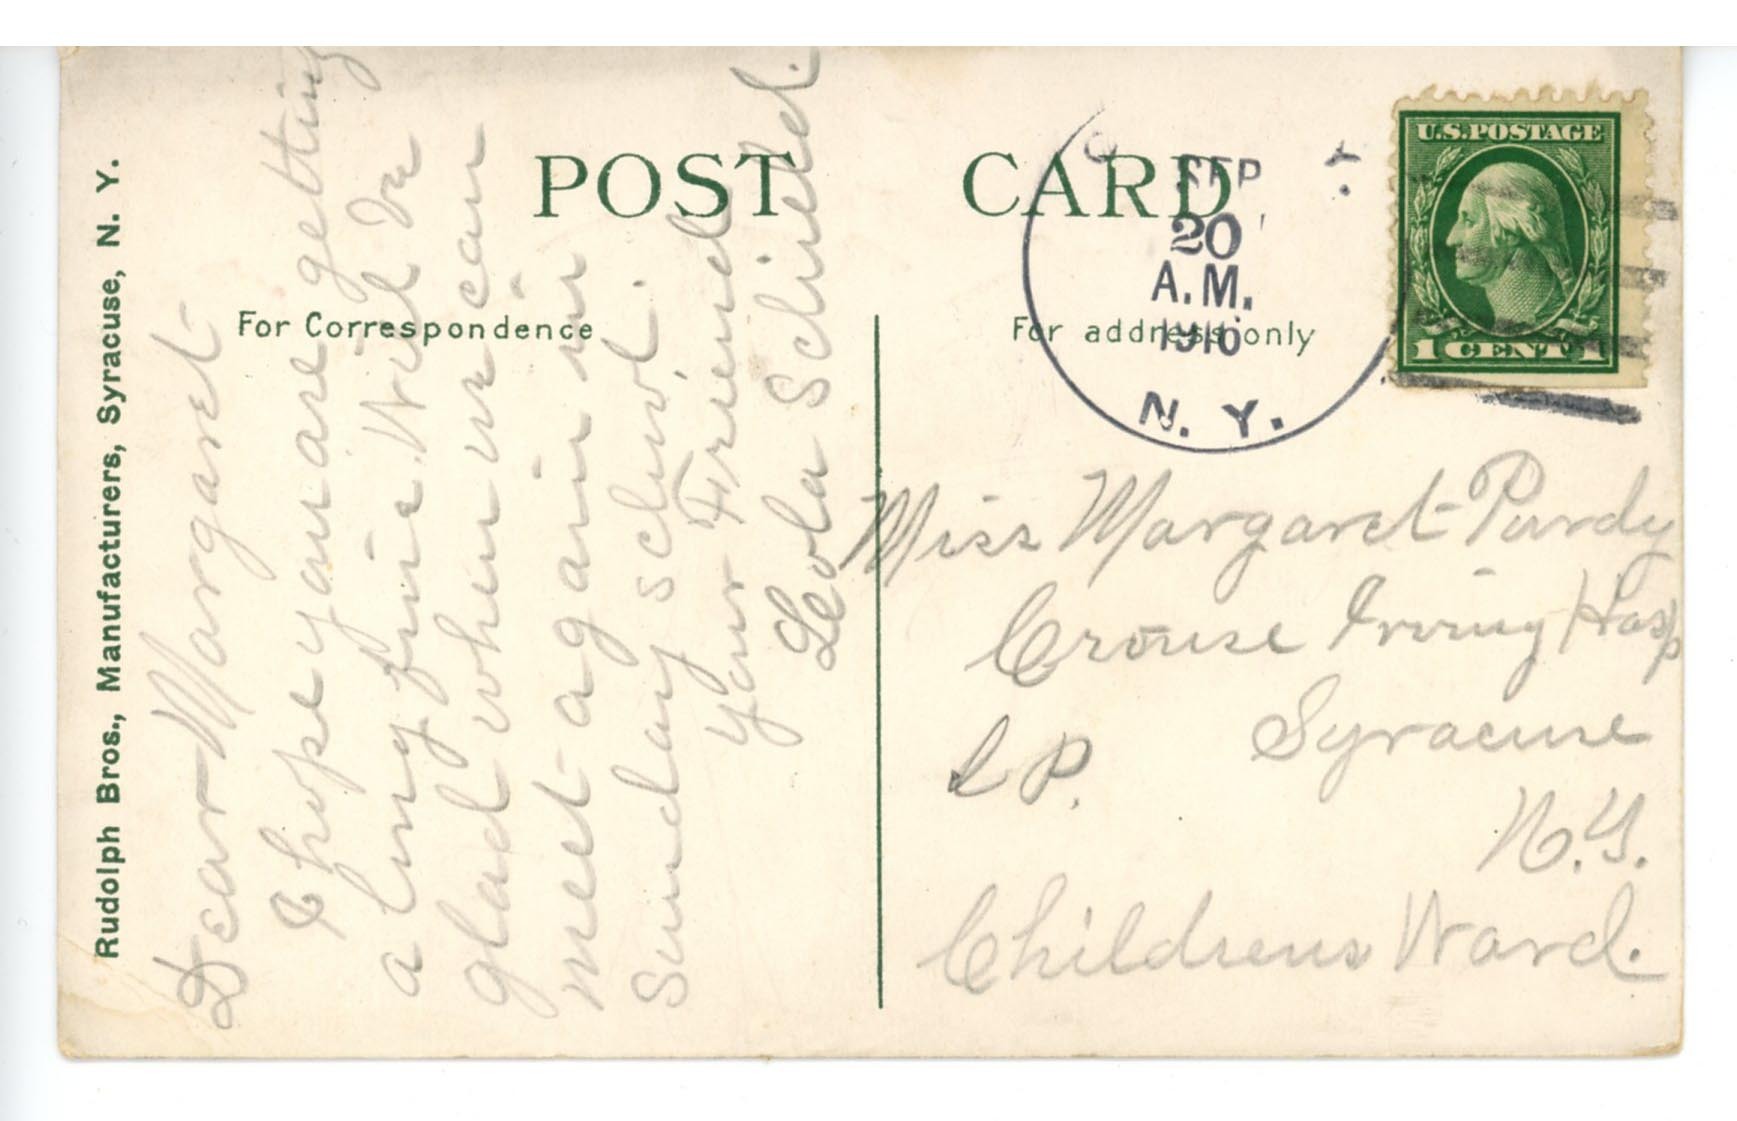 Rudolph Bros., Manufacturers, Syracuse, N. Y.
POST CARD
For Correspondence
For address only
Dear Margaret
I hope you are getting
a long fine. Will be
glad when we can
meet again in
Sunday school.
Your Friend
Leola Schield.
SEP
20
A.M.
1916
N. Y.
U.S. POSTAGE
1 CENT 1
Miss Margaret Purdy
Crouse Irving Hosp
Syracuse
N.Y.
Childrens Ward.